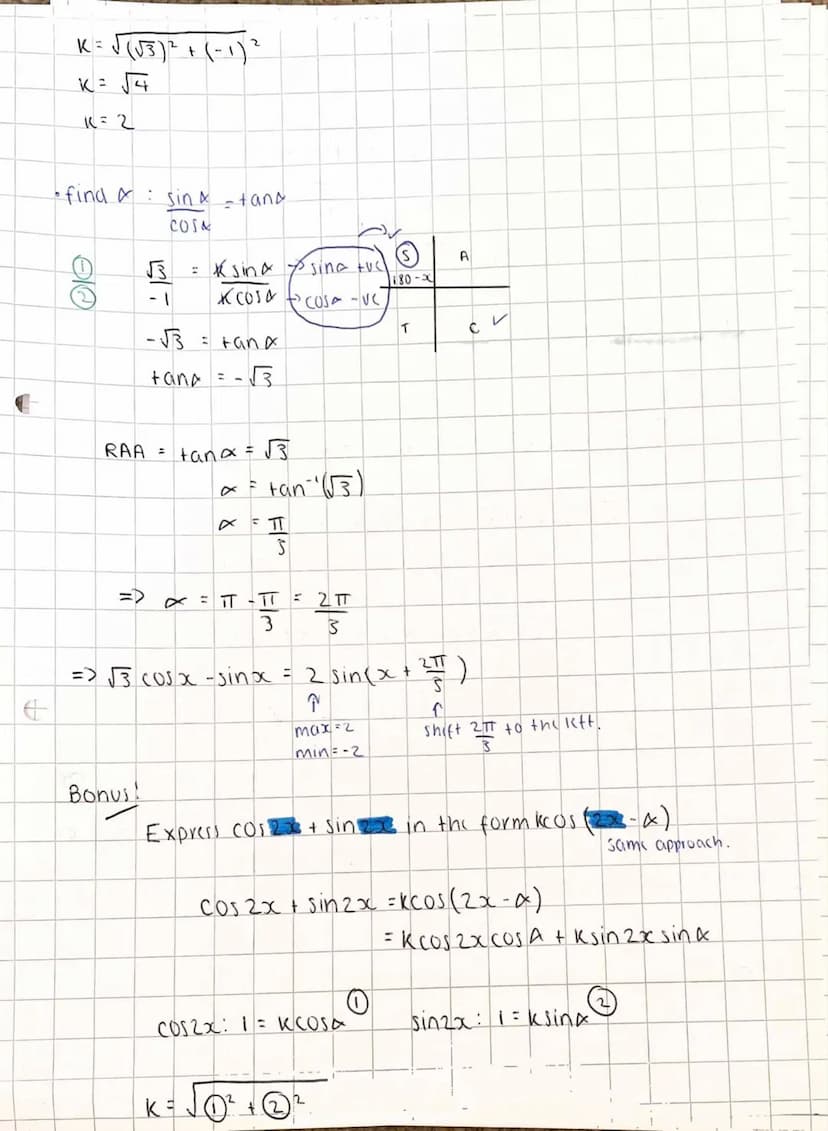 K = √((√3)² + (-1)²
K = √4
K = 2
• find α : sinα/cosα = tanα
①/② √3/-1 = Ksinα/Kcosα → sinα +ve → cosα -ve
S A
180-x
T C ✓
-√3 = tanα
tanα = -√3
RAA = tanα = √3
α = tan⁻¹(√3)
α = π/3
=> α = π - π/3 = 2π/3
=> √3 cosx - sinx = 2 sin(x + 2π/3)
↑ ↑
max = 2 shift 2π/3 to the left.
min = -2
Bonus!
Express cos2x + sin2x in the form kcos(2x - α)
same approach.
cos2x + sin2x = kcos(2x - α)
= Kcos2xcosA + Ksin2xsinα
cos2x: 1 = Kcosα ① sin2x: 1 = Ksinα ②
K = √(①² + ②²